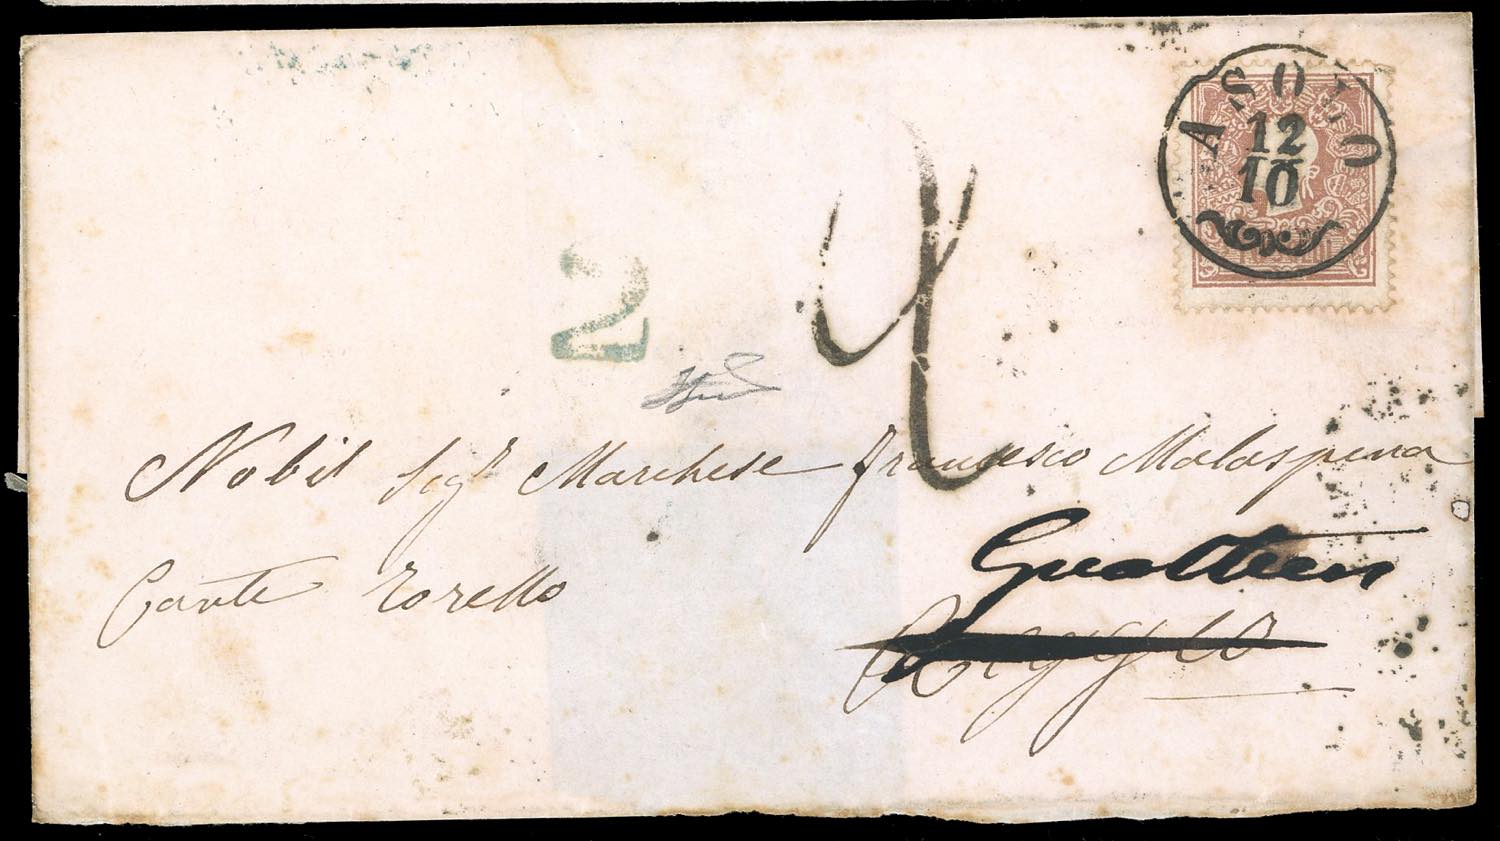 ASOLO
12
10
2
4
Nobil Sigr Marchese Francesco Malaspina
Conte Torello
Gualtieri
Reggio